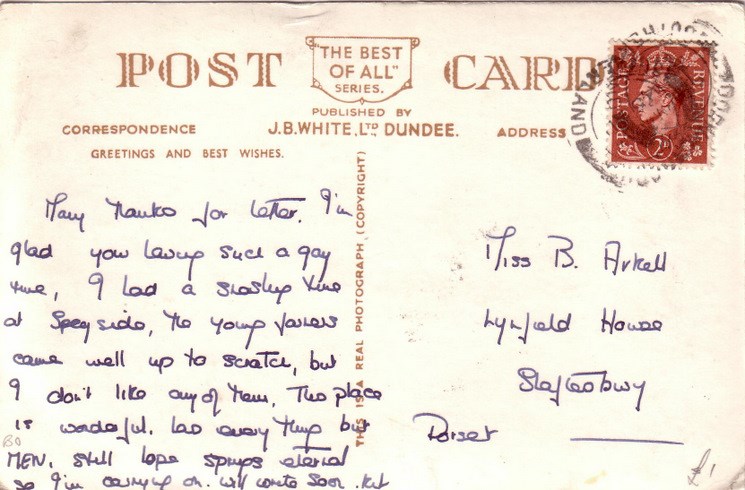 POST CARD
"THE BEST
OF ALL"
SERIES.
PUBLISHED BY
J.B. WHITE, LTD DUNDEE.
CORRESPONDENCE
ADDRESS
GREETINGS AND BEST WISHES.
Many thanks for letter. I'm
glad you having such a gay
time, I had a smashing time
at Speyside, the young farmers
came well up to scratch, but
I don't like any of them. This place
is wonderful. has every thing but
MEN. still hope springs eternal
so I'm carrying on. will write soon. Kit
THIS IS A REAL PHOTOGRAPH (COPYRIGHT)
Miss B. Arkell
Lynfield House
Shaftesbury
Dorset
POSTAGE
REVENUE
2D
BO
£1